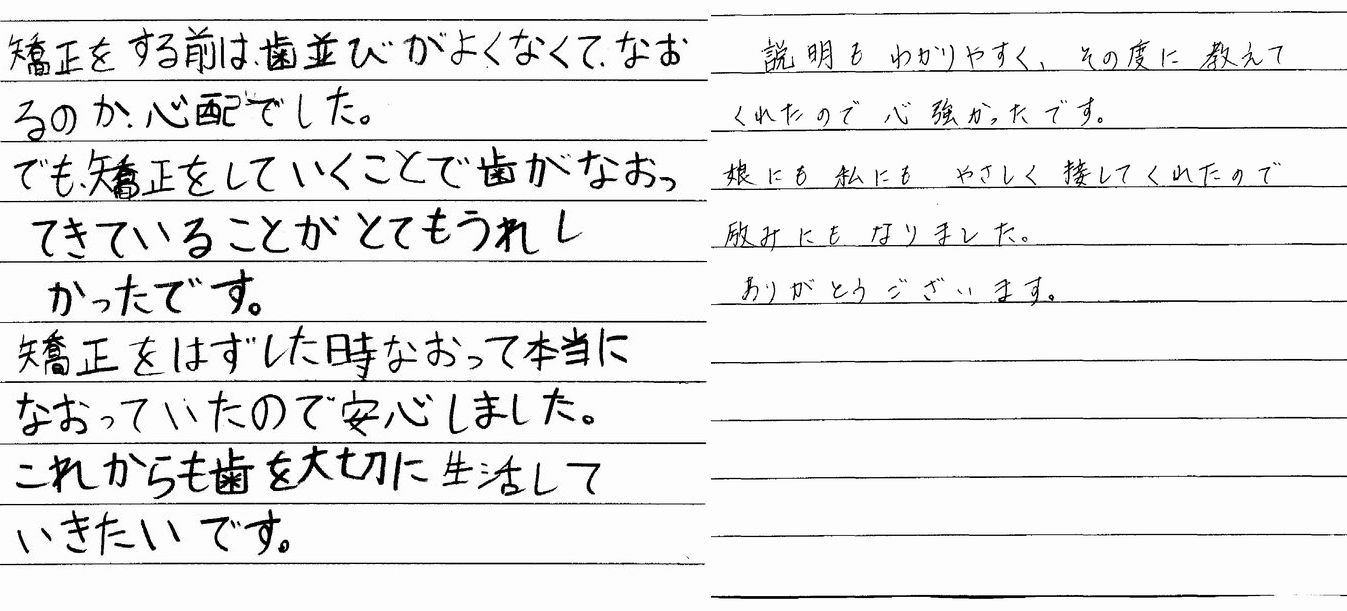 矯正をする前は、歯並びがよくなくて、なお
るのか、心配でした。
でも、矯正をしていくことで歯がなおっ
てきていることがとてもうれし
かったです。
矯正をはずした時なおって本当に
なおっていたので安心しました。
これからも歯を大切に生活して
いきたいです。
説明もわかりやすく、その度に教えて
くれたので心強かったです。
娘にも私にもやさしく接してくれたので
励みにもなりました。
ありがとうございます。